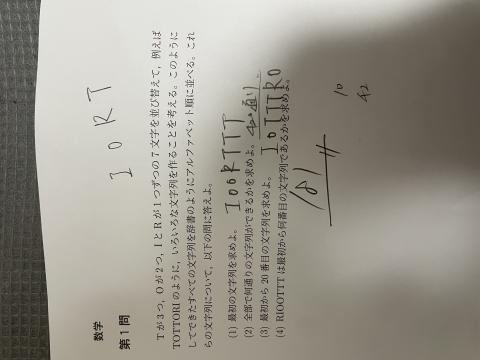 数学
第1問
I O R T
Tが3つ，Oが2つ，IとRが1つずつの7文字を並び替えて，例えば
TOTTORIのように，いろいろな文字列を作ることを考える。このように
してできたすべての文字列を辞書のようにアルファベット順に並べる。これ
らの文字列について，以下の問に答えよ。
(1) 最初の文字列を求めよ。 IOORTTT
(2) 全部で何通りの文字列ができるかを求めよ。
(3) 最初から20番目の文字列を求めよ。 IOTTTRO
(4) RIOOTTTは最初から何番目の文字列であるかを求めよ。
181
10
42